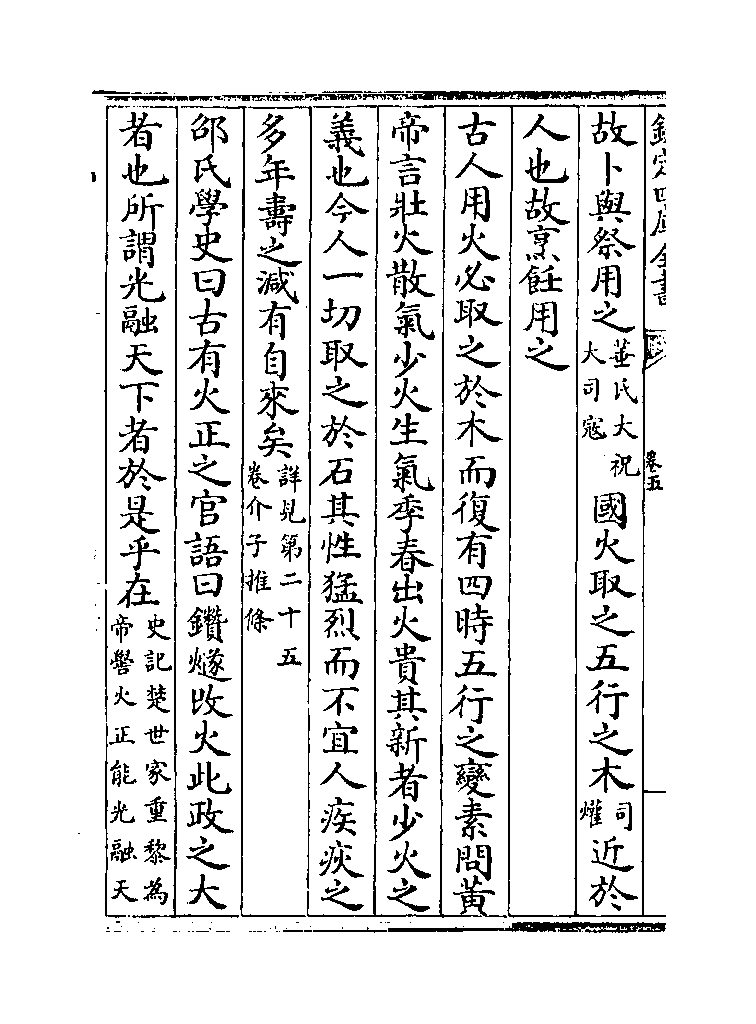 欽定四庫全書
卷五
故卜與祭用之菙氏大祝大司寇國火取之五行之木司爟近於
人也故烹飪用之
古人用火必取之於木而復有四時五行之變素問黃
帝言壯火散氣少火生氣季春出火貴其新者少火之
義也今人一切取之於石其性猛烈而不宜人疾疢之
多年壽之減有自來矣詳見第二十五卷介子推條
邵氏學史曰古有火正之官語曰鑽燧改火此政之大
者也所謂光融天下者於是乎在史記楚世家重黎為帝嚳火正能光融天